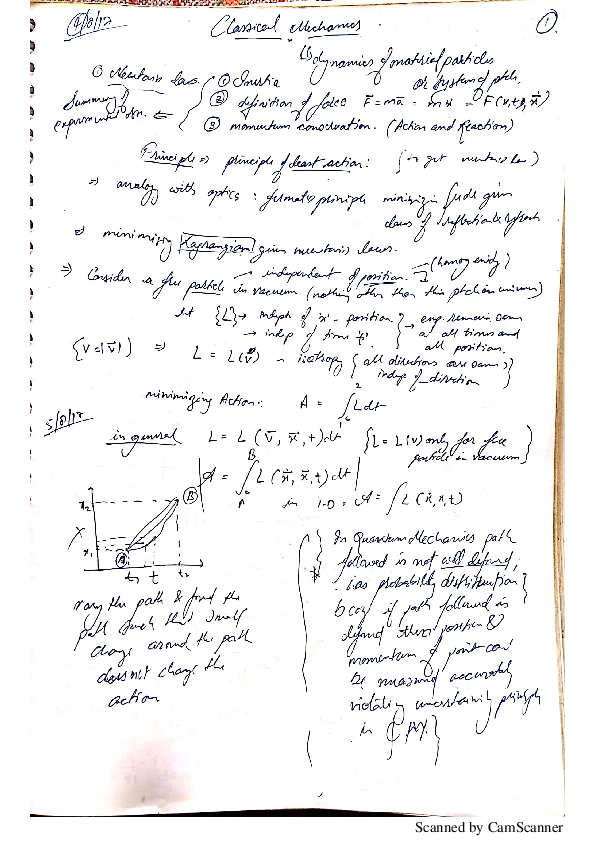 4/8/17 Classical Mechanics. 1
↳ dynamics of material particles
or system of ptcls.
① Newton's law. ① Inertia
② definition of force F̄ = mā = mẍ = F(v,t, x⃗)
Summary of
experiments ③ momentum conservation. (Action and Reaction)
Principle ⇒ principle of least action: (to get newton's law)
⇒ analogy with optics: fermat's principle minimizing given
laws of reflection & refraction
⇒ minimizing Lagrangian gives newton's laws.
⇒ Consider a free particle → independent of position. (homogeneity)
in vacuum (nothing other than this ptcl in universe)
let {L} → indep of 'x' - position
→ indep of time 't' exp. remain same
at all times and
all positions.
{v = |v̄|} ⇒ L = L(v̄) isotropy { all directions are same
indep of direction }
minimizing Action: A = ∫₁² L dt
5/8/17
in general L = L(v̄, x̄, t)dt {L = L(v) only for free
particle in vacuum}
A = ∫_A^B L(ẋ, x̄, t)dt
in 1-D A = ∫ L(ẋ, x, t)
x₂ B
X
x₁
A
t₁ t t₂
vary the path & find the
path such that small
change around the path
does not change the
action
* In Quantum Mechanics path
followed is not well defined,
has probability distribution
bcoz if path followed is
defined then position &
momentum of point can
be measured accurately
violating uncertainty principle
in
Scanned by CamScanner